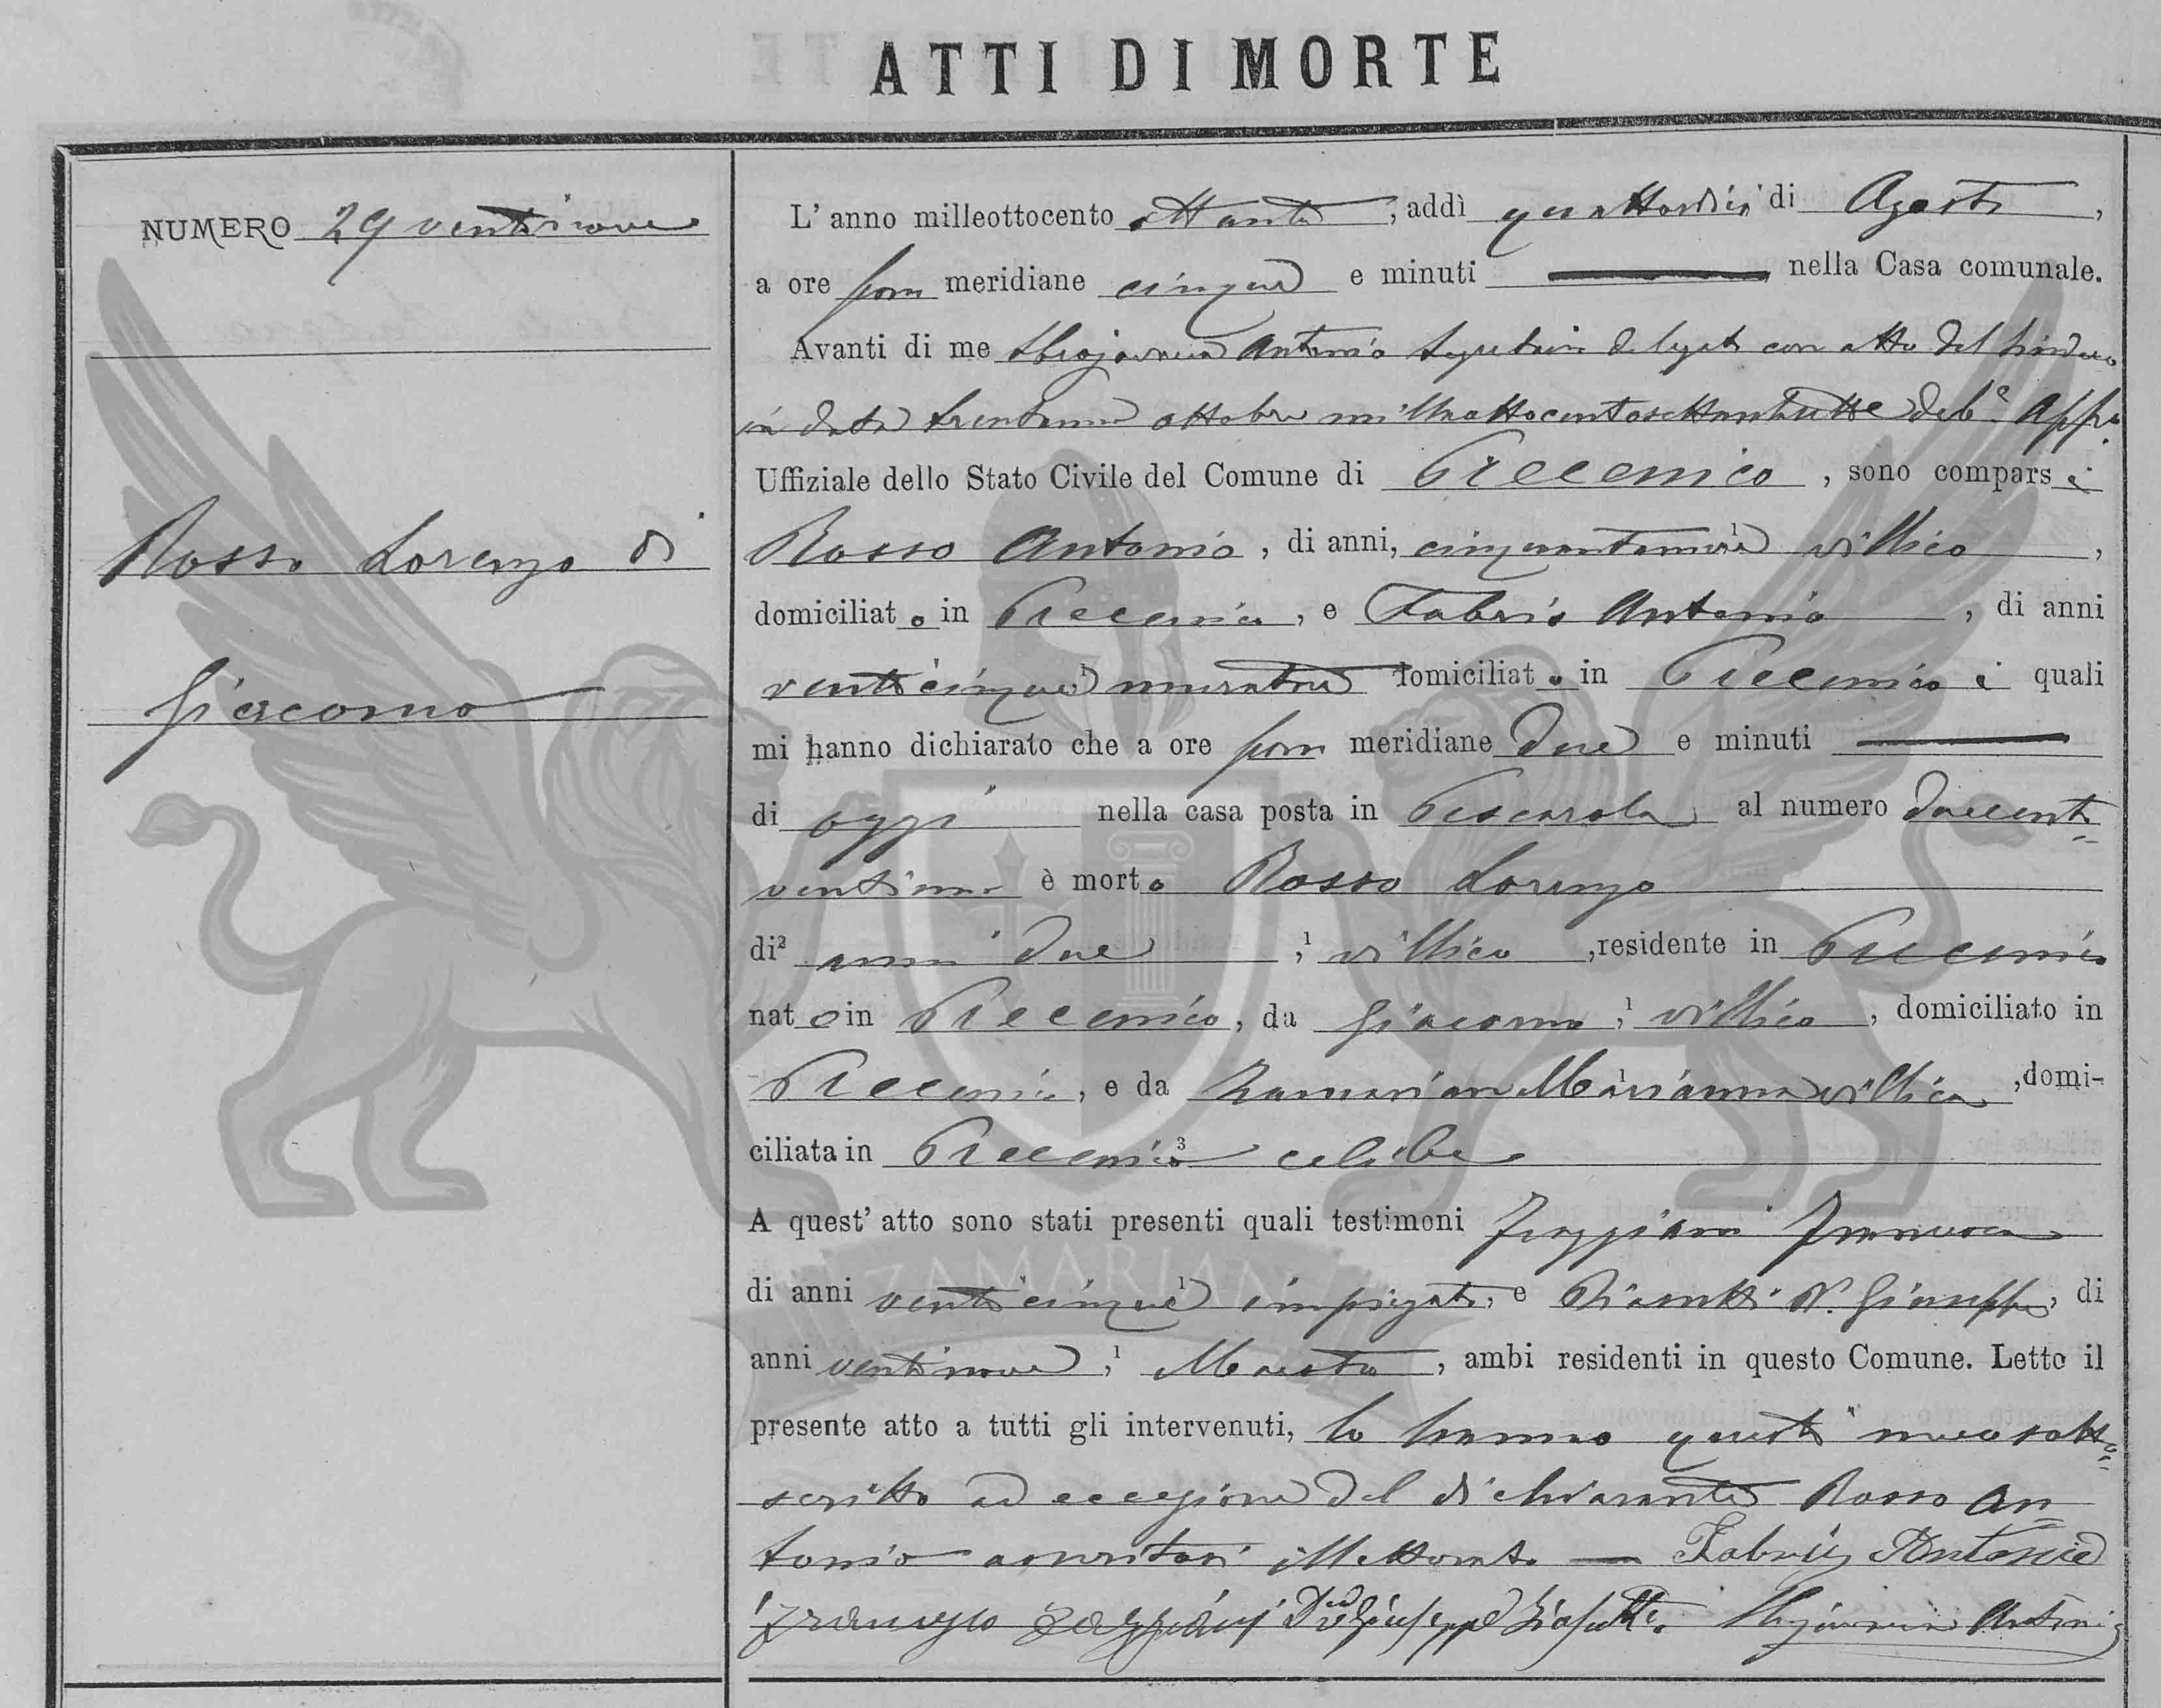 ATTI DI MORTE
NUMERO 29 ventinove
Rosso Lorenzo di
Giacomo
L' anno milleottocento ottanta, addì quattordici di Agosto,
a ore pom meridiane cinque e minuti nella Casa comunale.
Avanti di me Antonio Segretario delegato con atto del Sindaco
in data trentuno ottobre milleottocentosettantasette deb.e App.o
Uffiziale dello Stato Civile del Comune di Precenico, sono comparsi
Rosso Antonio, di anni, cinquantanove 1 villico,
domiciliato in Precenico, e Fabris Antonio, di anni
venticinque 1 muratore domiciliato in Precenico i quali
mi hanno dichiarato che a ore pom meridiane due e minuti
di oggi nella casa posta in Pescarola al numero duecento=
è morto Rosso Lorenzo
di2 anni due,1 villico, residente in Precenico
nato in Precenico, da Giacomo,1 villico, domiciliato in
Precenico, e da Zamarian Marianna 1 villica, domi-
ciliata in Precenico 3 celibe
A quest' atto sono stati presenti quali testimoni Francesco
di anni venticinque 1 impiegato, e Giuseppe, di
anni ventinove,1 Maestro, ambi residenti in questo Comune. Letto il
presente atto a tutti gli intervenuti, lo hanno questi meco sotto=
scritto ad eccezione del dichiarante Rosso An=
tonio illetterato — Fabris Antonio
Antonio
ZAMARIAN